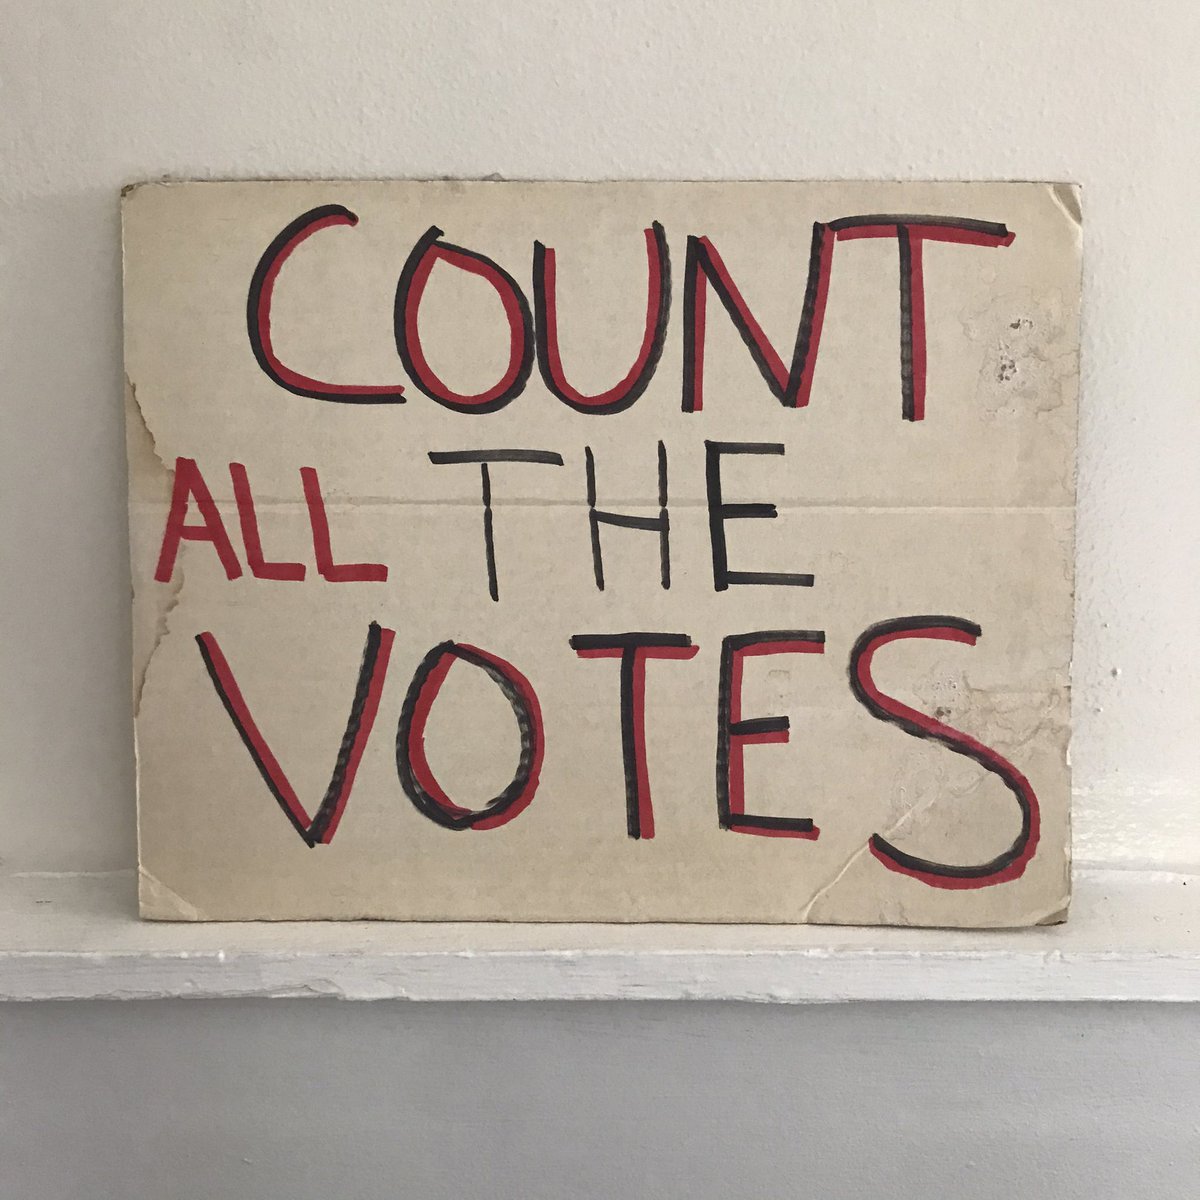 COUNT
ALL THE
VOTES